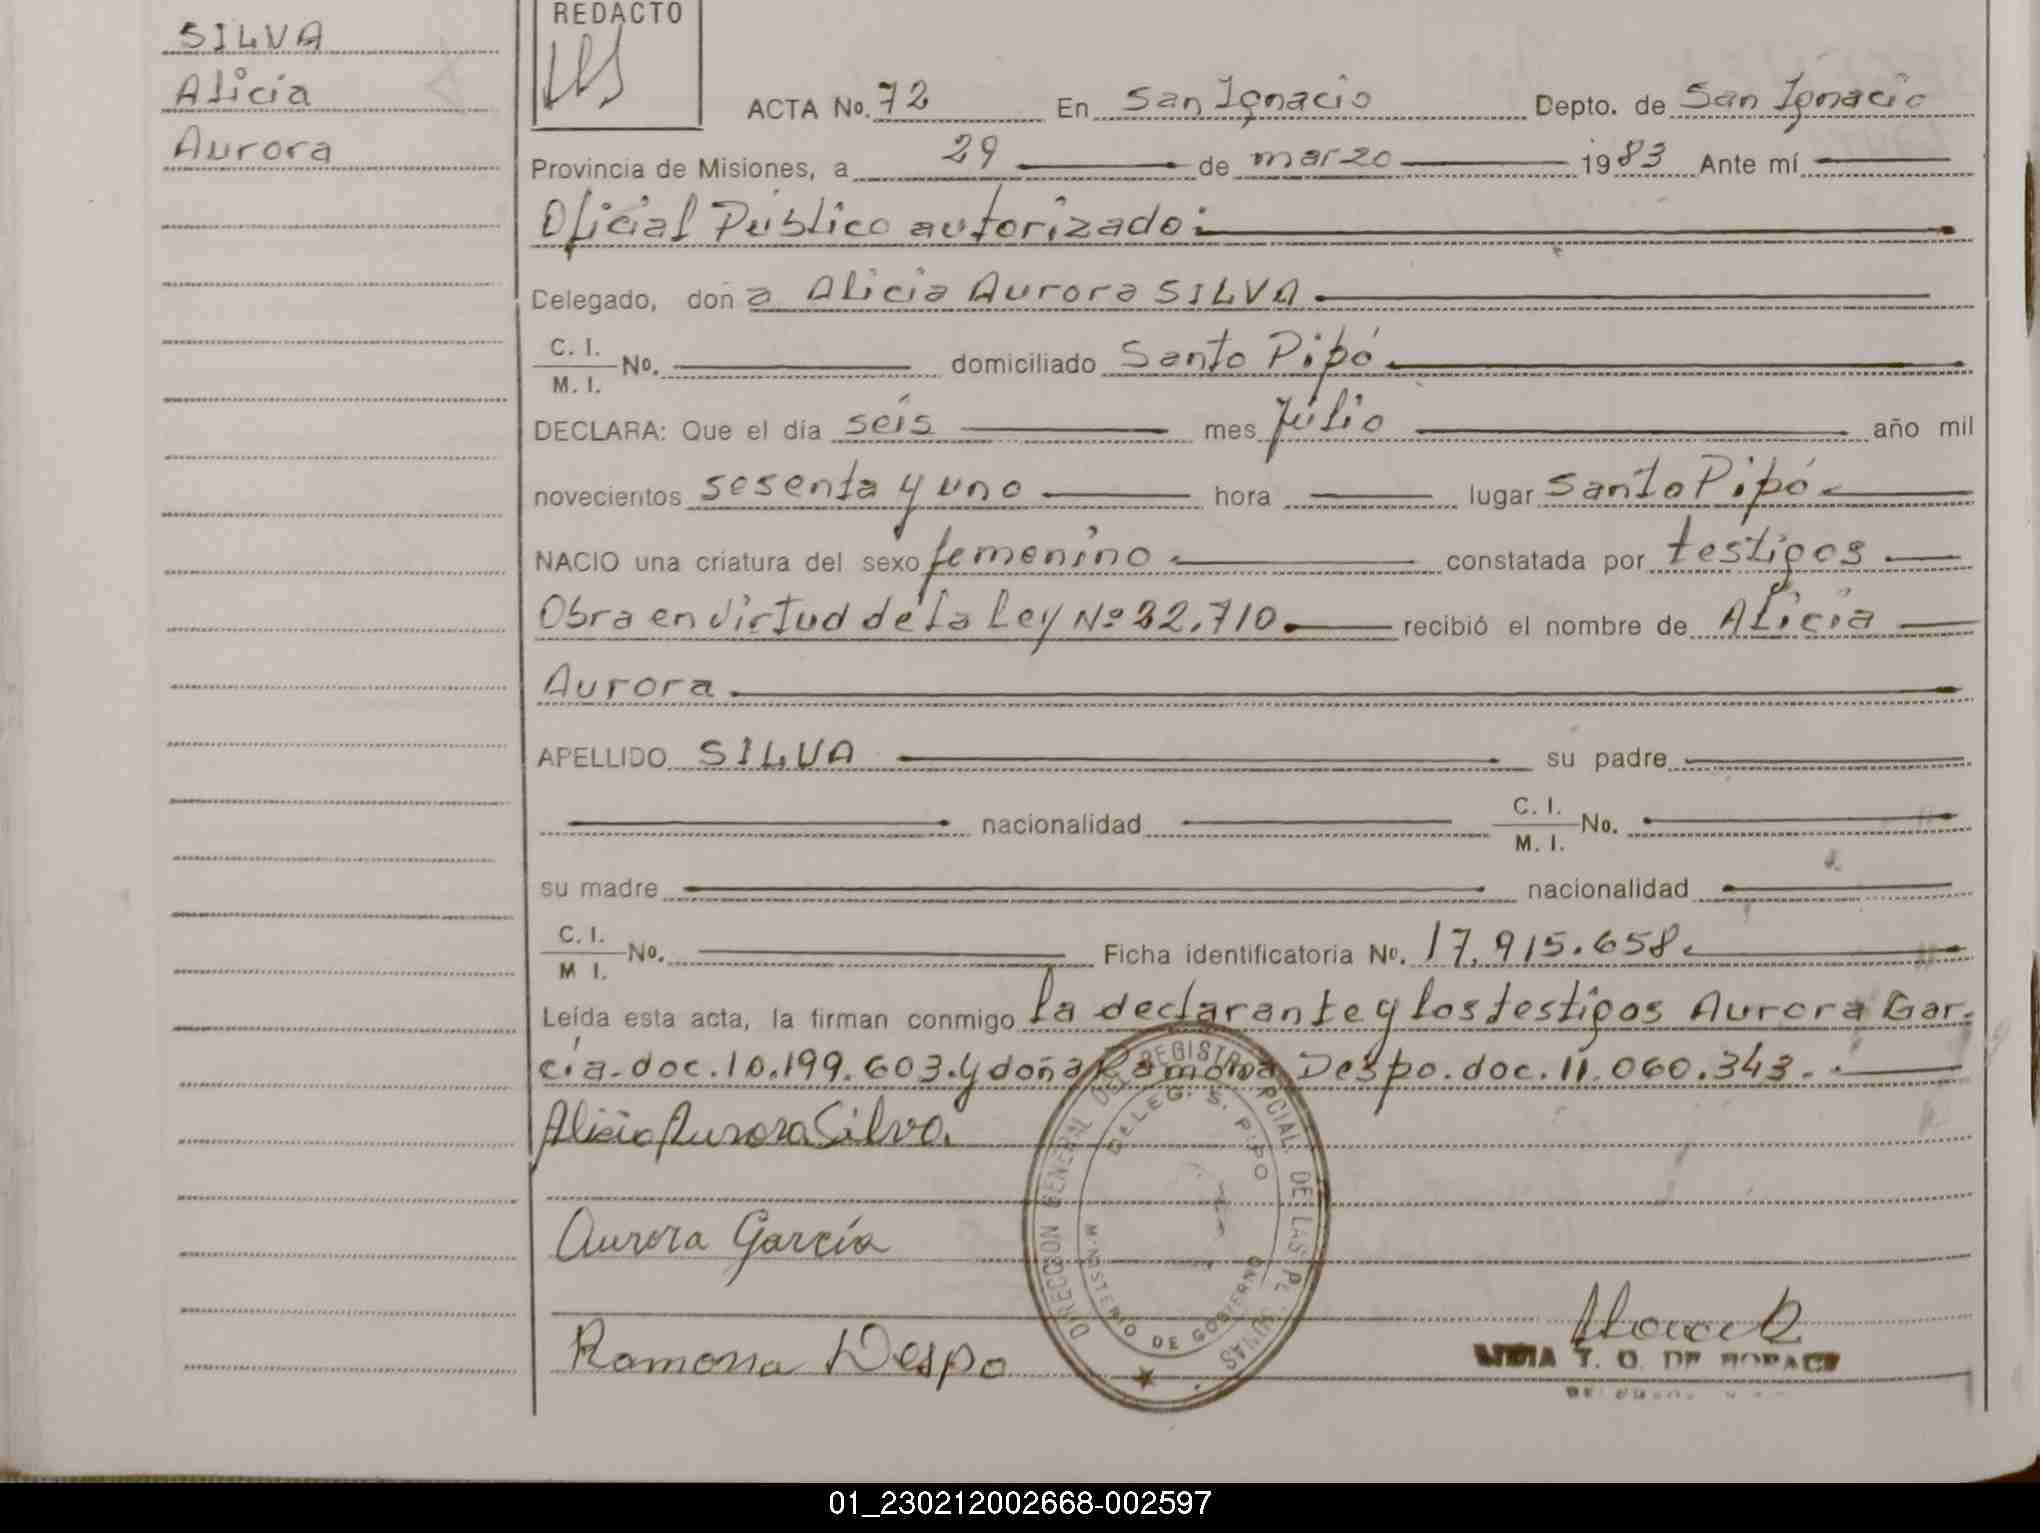 SILVA
Alicia
Aurora
REDACTO
ACTA No. 72 En San Ignacio Depto. de San Ignacio
Provincia de Misiones, a 29 de marzo 1983 Ante mí
Oficial Público autorizado:
Delegado, doña Alicia Aurora SILVA
C. I.
M. I. No. domiciliado Santo Pipó
DECLARA: Que el día seis mes Julio año mil
novecientos sesenta y uno hora lugar Santo Pipó
NACIO una criatura del sexo femenino constatada por testigos
Obra en virtud de la Ley Nº 22.710 recibió el nombre de Alicia
Aurora
APELLIDO SILVA su padre
nacionalidad C. I.
M. I. No.
su madre nacionalidad
C. I.
M I. No. Ficha identificatoria No. 17.915.658.
Leída esta acta, la firman conmigo la declarante y los testigos Aurora Gar-
cía-doc.10.199.603.y doña Ramona Despo.doc.11.060.343.-
Alicia Aurora Silva.
Aurora García
Ramona Despo
DIRECCION GENERAL DEL REGISTRO PCIAL. DE LAS
DELEG. S. PIPO
MINISTERIO DE GOBIERNO
T. O. DE
01_230212002668-002597